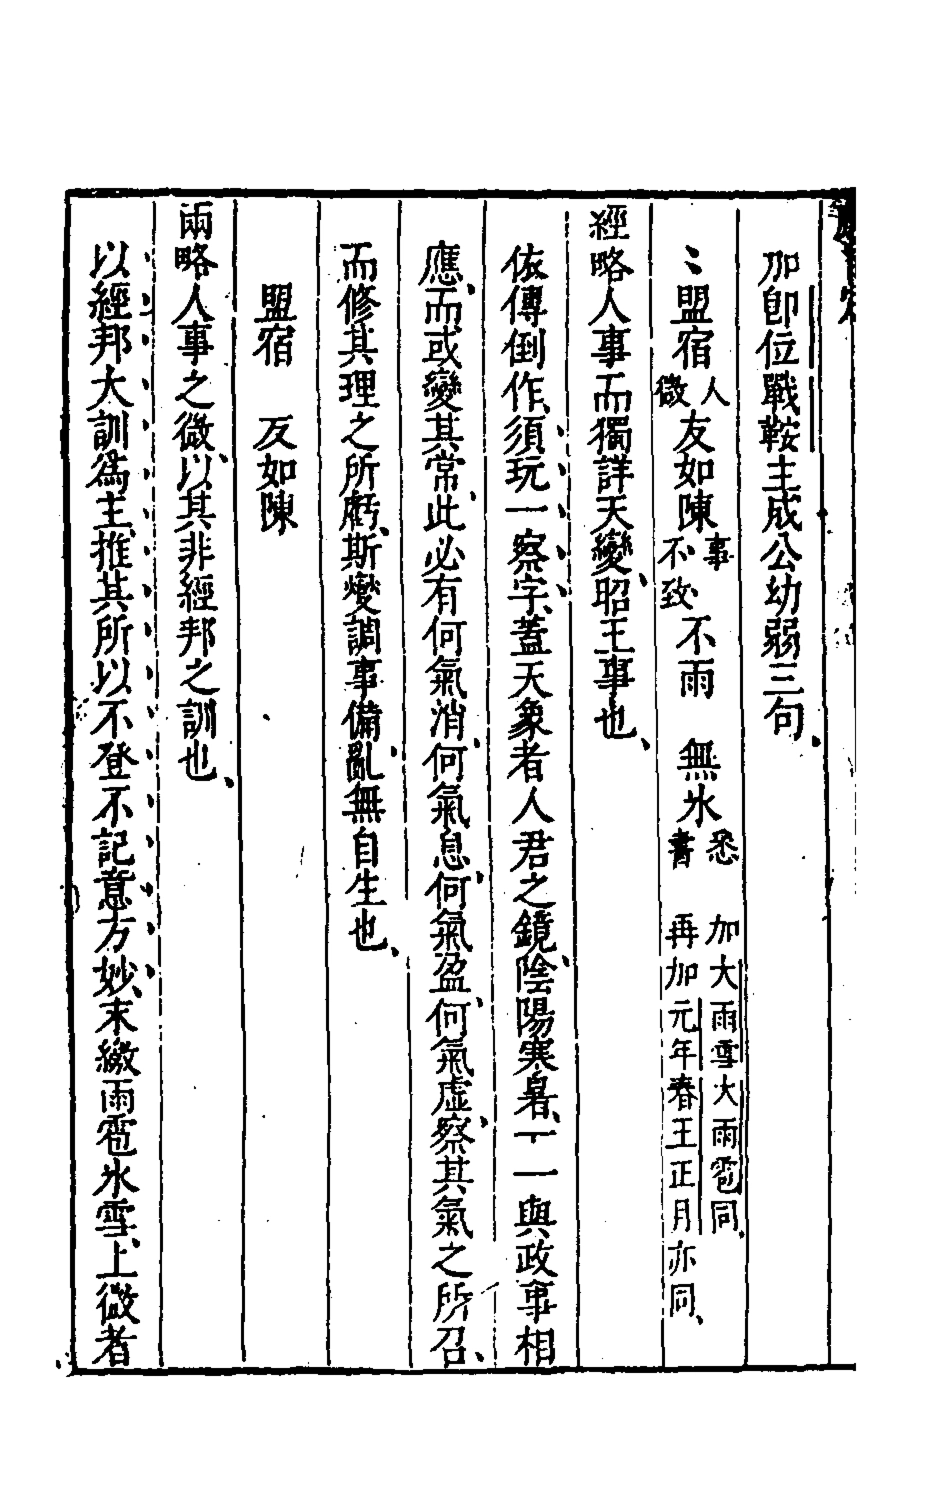 加卽位戰鞍主成公幼弱三句、
〻盟宿人微友如陳事不致不雨　無氷悉書　加大雨雪大雨雹同、再加元年春王正月亦同、
經略人事而獨詳天變、昭王事也、
依傳倒作、須玩一察字、蓋天象者人君之鏡、陰陽寒暑、一一與政事相
應、而或變其常、此必有何氣消、何氣息、何氣盈、何氣虛、察其氣之所召、
而修其理之所虧、斯燮調事備、亂無自生也、
盟宿　友如陳
兩略人事之微、以其非經邦之訓也、
以經邦大訓爲主、推其所以不登不記意方妙、末繳雨雹氷雪、上微者